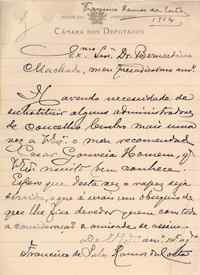 Francisco Ramos da Costa
1914
CÂMARA DOS DEPUTADOS
Ex.mo Snr. Dr. Bernardino
Machado, meu prezadissimo am.º
Havendo necessidade de
substituir alguns administradores
de concelho lembro mais uma
vez a V. Ex.ª o meu recomendado
Cesar Gouveia Homem, q
V. Ex.ª muito bem conhece.
Espero que desta vez o rapaz seja
servido, que é mais um obsequio de
que lhe fica devedor quem com toda
a consideração e amisade se assina
De V. Ex.ª am.º
Francisco de Sales Ramos da Costa